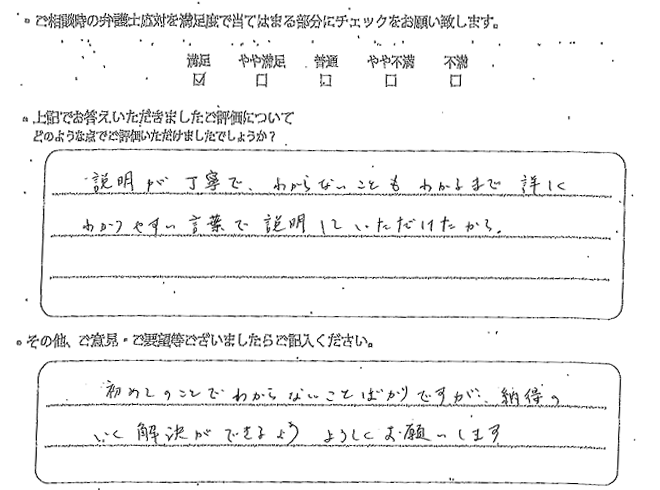 ご相談時の弁護士応対を満足度で当てはまる部分にチェックをお願い致します。
満足 やや満足 普通 やや不満 不満
☑ □ □ □ □
上記でお答えいただきましたご評価について
どのような点でご評価いただけましたでしょうか？
説明が丁寧で、わからないこともわかるまで詳しく
わかりやすい言葉で説明していただけたから。
その他、ご意見・ご要望等ございましたらご記入ください。
初めてのことでわからないことばかりですが、納得の
いく解決ができるよう よろしくお願いします